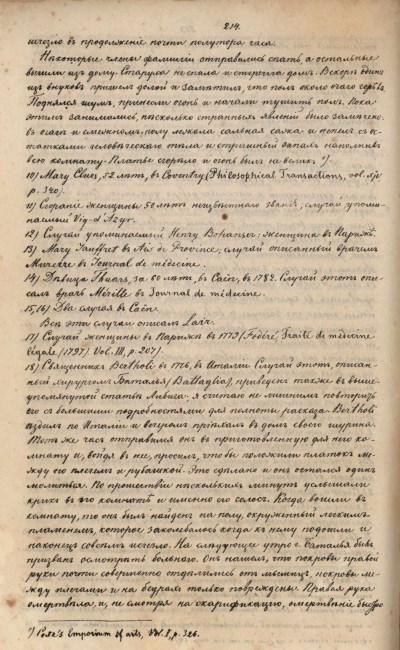 214.
исчезло въ продолженіе почти полутора часа.
Нѣкоторые члены фамиліи отправились спать, а остальные
вышли изъ дому. Старуха не спала и стерегла домъ. Вскорѣ одинъ
изъ внуковъ пришелъ домой и замѣтилъ, что полъ около очага горѣлъ.
Поднялся шумъ, принесли огонь и начали тушить полъ. Пока
этимъ занимались, нѣсколько странныхъ явленій было замѣчено.
въ очагѣ и смежномъ полу лежала сальная сажа и пепелъ съ ос-
татками человѣческаго тѣла и страшный запахъ наполнялъ
всю комнату. Платье сгорѣло и огонь былъ не великъ. ¹)
10) Mary Clues, 52 лѣтъ, въ Coventry (Philosophical Transactions, vol.
p. 340).
11) Сгораніе женщины 50 лѣтъ неизвѣстнаго званія; случай упоми-
наемый Viq-d'Azyr.
12) Случай упоминаемый Henry Bohanser: женщина въ Парижѣ.
13) Mary Jauffret въ Aix de Provence; случай описанный врачемъ
Muraire въ Journal de médecine.
14) Дѣвица Thuars, за 60 лѣтъ, въ Caën, въ 1782. Случай этотъ опи-
салъ врачъ Mérille въ Journal de médecine.
15, 16) Два случая въ Caën.
Всѣ эти случаи описалъ Lair.
17) Случай женщины въ Парижѣ въ 1779 (Foderé, Traité de médecine
légale (1797) Vol. III, p. 207).
18) Священникъ Bertholi въ 1776, въ Италіи. Случай этотъ, описан-
ный хирургомъ Баталья (Battaglia), приведенъ также въ выше-
упомянутой статьѣ Льюиса. я считаю не лишнимъ повторить
его съ большими подробностями для полноты разсказа. Bertholi
ѣздилъ по Италіи и вечеромъ пріѣхалъ въ домъ своего шурина.
Тотъ же часъ отправился онъ въ приготовленную для него ко-
мнату и, войдя въ нее, просилъ, что бы положили платокъ ме-
жду его плечемъ и рубашкой. Это сдѣлано и онъ остался одинъ
молиться. По прошествіи нѣсколькихъ минутъ услышали
крикъ въ его комнатѣ и именно его голосъ. Когда вошли въ
комнату, то онъ былъ найденъ на полу, окруженный легкимъ
пламенемъ, которое заколебалось когда къ нему подошли и
наконецъ совсѣмъ исчезло. На слѣдующее утро Баталья былъ
призванъ осмотрѣть больнаго. Онъ нашелъ, что покровы правой
руки почти совершенно отдѣлились отъ мышцъ, покровы ме-
жду плечами и на бедрахъ только повреждены. Правая рука
омертвѣла, и, не смотря на скарификацію, омертвѣніе быстро
¹) Coxe's Emporium of arts, Vol. I, p. 326.